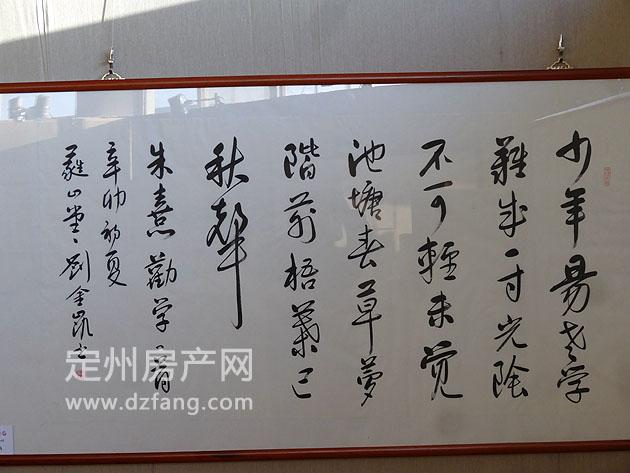 少年易老学
難成一寸光陰
不可輕未觉
池塘春草夢
階前梧葉已
秋聲
朱熹勸学
辛卯初夏
山堂劉金凯书
定州房产网
www.dzfang.com